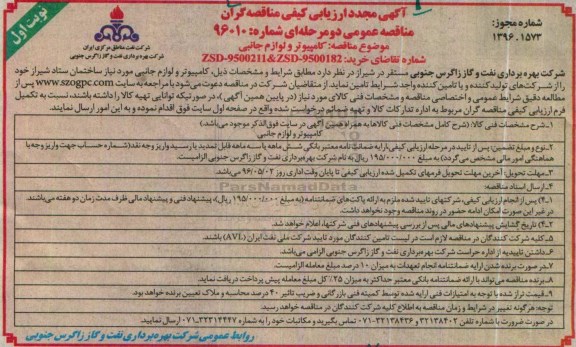 نوبت اول
شماره مجوز:
۱۳۹۶.۱۵۷۳
آگهی مجدد ارزیابی کیفی مناقصه گران
مناقصه عمومی دو مرحله‌ای شماره: ۹۶۰۱۰
موضوع مناقصه: کامپیوتر و لوازم جانبی
شماره تقاضای خرید: ZSD-9500211&ZSD-9500182
شرکت نفت مناطق مرکزی ایران
شرکت بهره برداری نفت و گاز زاگرس جنوبی
شرکت بهره برداری نفت و گاز زاگرس جنوبی مستقر در شیراز در نظر دارد مطابق شرایط و مشخصات ذیل، کامپیوتر و لوازم جانبی مورد نیاز ساختمان ستاد شیراز خود
را از شرکت‌های تولید کننده و یا تامین کننده واجد شرایط تامین نماید. از متقاضیان شرکت در مناقصه دعوت می‌شود با مراجعه به سایت www.szogpc.com پس از
مطالعه دقیق شرایط عمومی و اختصاصی مناقصه و مشخصات فنی کالای مورد نیاز (در پایین همین آگهی)، در صورتیکه توانایی تهیه کالا را داشته باشند، نسبت به تکمیل
فرم ارزیابی کیفی مناقصه گران مربوط به اداره تدارکات کالا و تهیه ضمائم درخواست شده واقع در صفحه اول سایت فوق اقدام نموده و به این امور ارسال نمایند.
۱ـ شرح مشخصات فنی کالا: (شرح کامل مشخصات فنی کالاها به همراه همین آگهی در سایت فوق الذکر موجود می‌باشد.)
کامپیوتر و لوازم جانبی
۲ـ نوع و مبلغ تضمین: پس از تایید در مرحله ارزیابی کیفی، ارایه ضمانت نامه معتبر بانکی شش ماهه با سه ماهه قابل تمدید یا رسید واریز وجه نقد (شماره حساب جهت واریز وجه با
هماهنگی امور مالی مشخص می گردد) به مبلغ ۱۹۵/۰۰۰/۰۰۰ ریال به نام شرکت بهره برداری نفت و گاز زاگرس جنوبی الزامیست.
۳ـ مهلت تحویل: آخرین مهلت تحویل فرمهای تکمیل شده ارزیابی کیفی تا پایان وقت اداری روز ۹۶/۰۵/۰۲ می‌باشد.
۴ـ ارسال اسناد مناقصه:
۴ـ۱) پس از انجام ارزیابی کیفی، شرکتهای تایید شده ملزم به ارائه پاکت‌های ضمانتنامه (به مبلغ ۱۹۵/۰۰۰/۰۰۰ ریال)، پیشنهاد فنی و پیشنهاد مالی ظرف مدت زمان دو هفته می‌باشند.
در غیر این صورت امکان ادامه حضور در روند مناقصه وجود نخواهد داشت.
۴ـ۲) تاریخ گشایش پیشنهادهای مالی پس از بررسی پیشنهادهای فنی شرکتها، اعلام خواهد شد.
۵ـ کلیه شرکت کنندگان در مناقصه لازم است در لیست تامین کنندگان مورد تایید شرکت ملی نفت ایران (AVL) باشند.
۶ـ داشتن تاییدیه از اداره حراست شرکت بهره برداری نفت و گاز زاگرس جنوبی الزامی می‌باشد.
۷ـ در صورت برنده شدن ارایه ضمانتنامه انجام تعهدات به میزان ۱۰ درصد مبلغ معامله الزامیست.
۸ـ برنده مناقصه می‌تواند با ارائه ضمانتنامه بانکی معتبر حداکثر به میزان ۲۵٪ کل مبلغ معامله پیش پرداخت دریافت نماید.
۹ـ قیمت تراز شده با توجه به امتیازات فنی ارایه شده توسط کمیته فنی بازرگانی و ضریب تاثیر ۴۰ درصد محاسبه و ملاک تعیین برنده خواهد بود.
توجه: هرگونه تغییر در شرایط و زمان مناقصه به اطلاع کلیه شرکت کنندگان در مناقصه خواهد رسید.
در صورت ضرورت با شماره تلفن ۳۲۱۳۸۴۰۲ و ۳۲۱۳۸۴۳۶-۰۷۱ تماس بگیرید و مکاتبات خود را به شماره ۳۲۳۱۴۴۴۷-۰۷۱ ارسال نمایید.
روابط عمومی شرکت بهره برداری نفت و گاز زاگرس جنوبی
ParsNamadData